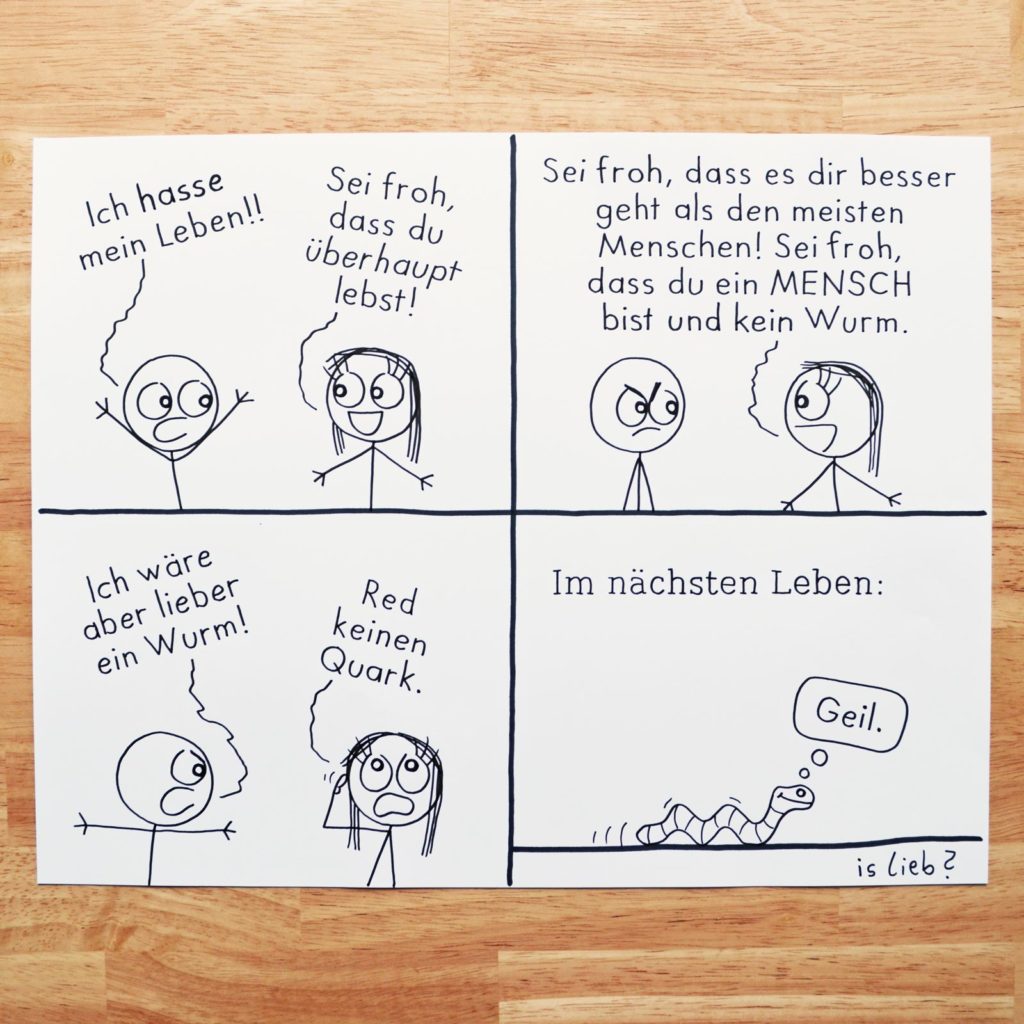 Ich hasse
mein Leben!!
Sei froh,
dass du
überhaupt
lebst!
Sei froh, dass es dir besser
geht als den meisten
Menschen! Sei froh,
dass du ein MENSCH
bist und kein Wurm.
Ich wäre
aber lieber
ein Wurm!
Red
keinen
Quark.
Im nächsten Leben:
Geil.
is lieb?